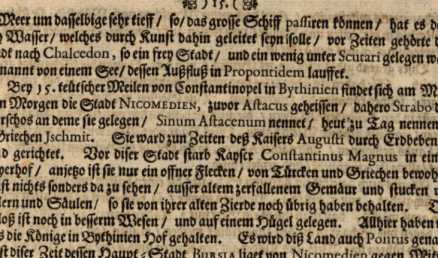 ) 15. (
Meer um dasselbige sehr tieff / so / das grosse Schiff passiren können / hat es d
h Wasser / welches durch Kunst dahin geleitet seyn solle / vor Zeiten gehörte d
dt nach Chalcedon, so ein frey Stadt / und ein wenig unter Scutari gelegen wa
nannt von einem See / dessen Außfluß in Propontidem lauffet.
Bey 15. teutscher Meilen von Constantinopel in Bythinien findet sich am M
n Morgen die Stadt NICOMEDIEN, zuvor Astacus geheissen / dahero Strabo
rschos an deme sie gelegen / Sinum Astacenum nennet / heut zu Tag nennen
Griechen Jschmit. Sie ward zun Zeiten deß Kaisers Augusti durch Erdbeben
d gerichtet. Vor diser Stadt starb Kayser Constantinus Magnus in ein
yerhof / anjetzo ist sie nur ein offner Flecken / von Türcken und Griechen bewoh
st nichts sonders da zu sehen / ausser altem zerfallenem Gemäur und stucken
lern und Säulen / so sie von ihrer alten Zierde noch übrig haben behalten.
loß ist noch in besserm Wesen / und auf einem Hügel gelegen. Allhier haben
s die Könige in Bythinien Hof gehalten. Es wird diß Land auch Pontus gena
st diser Zeit dessen Haupt-Stadt BURSIA liget von Nicomedien gegen Mit